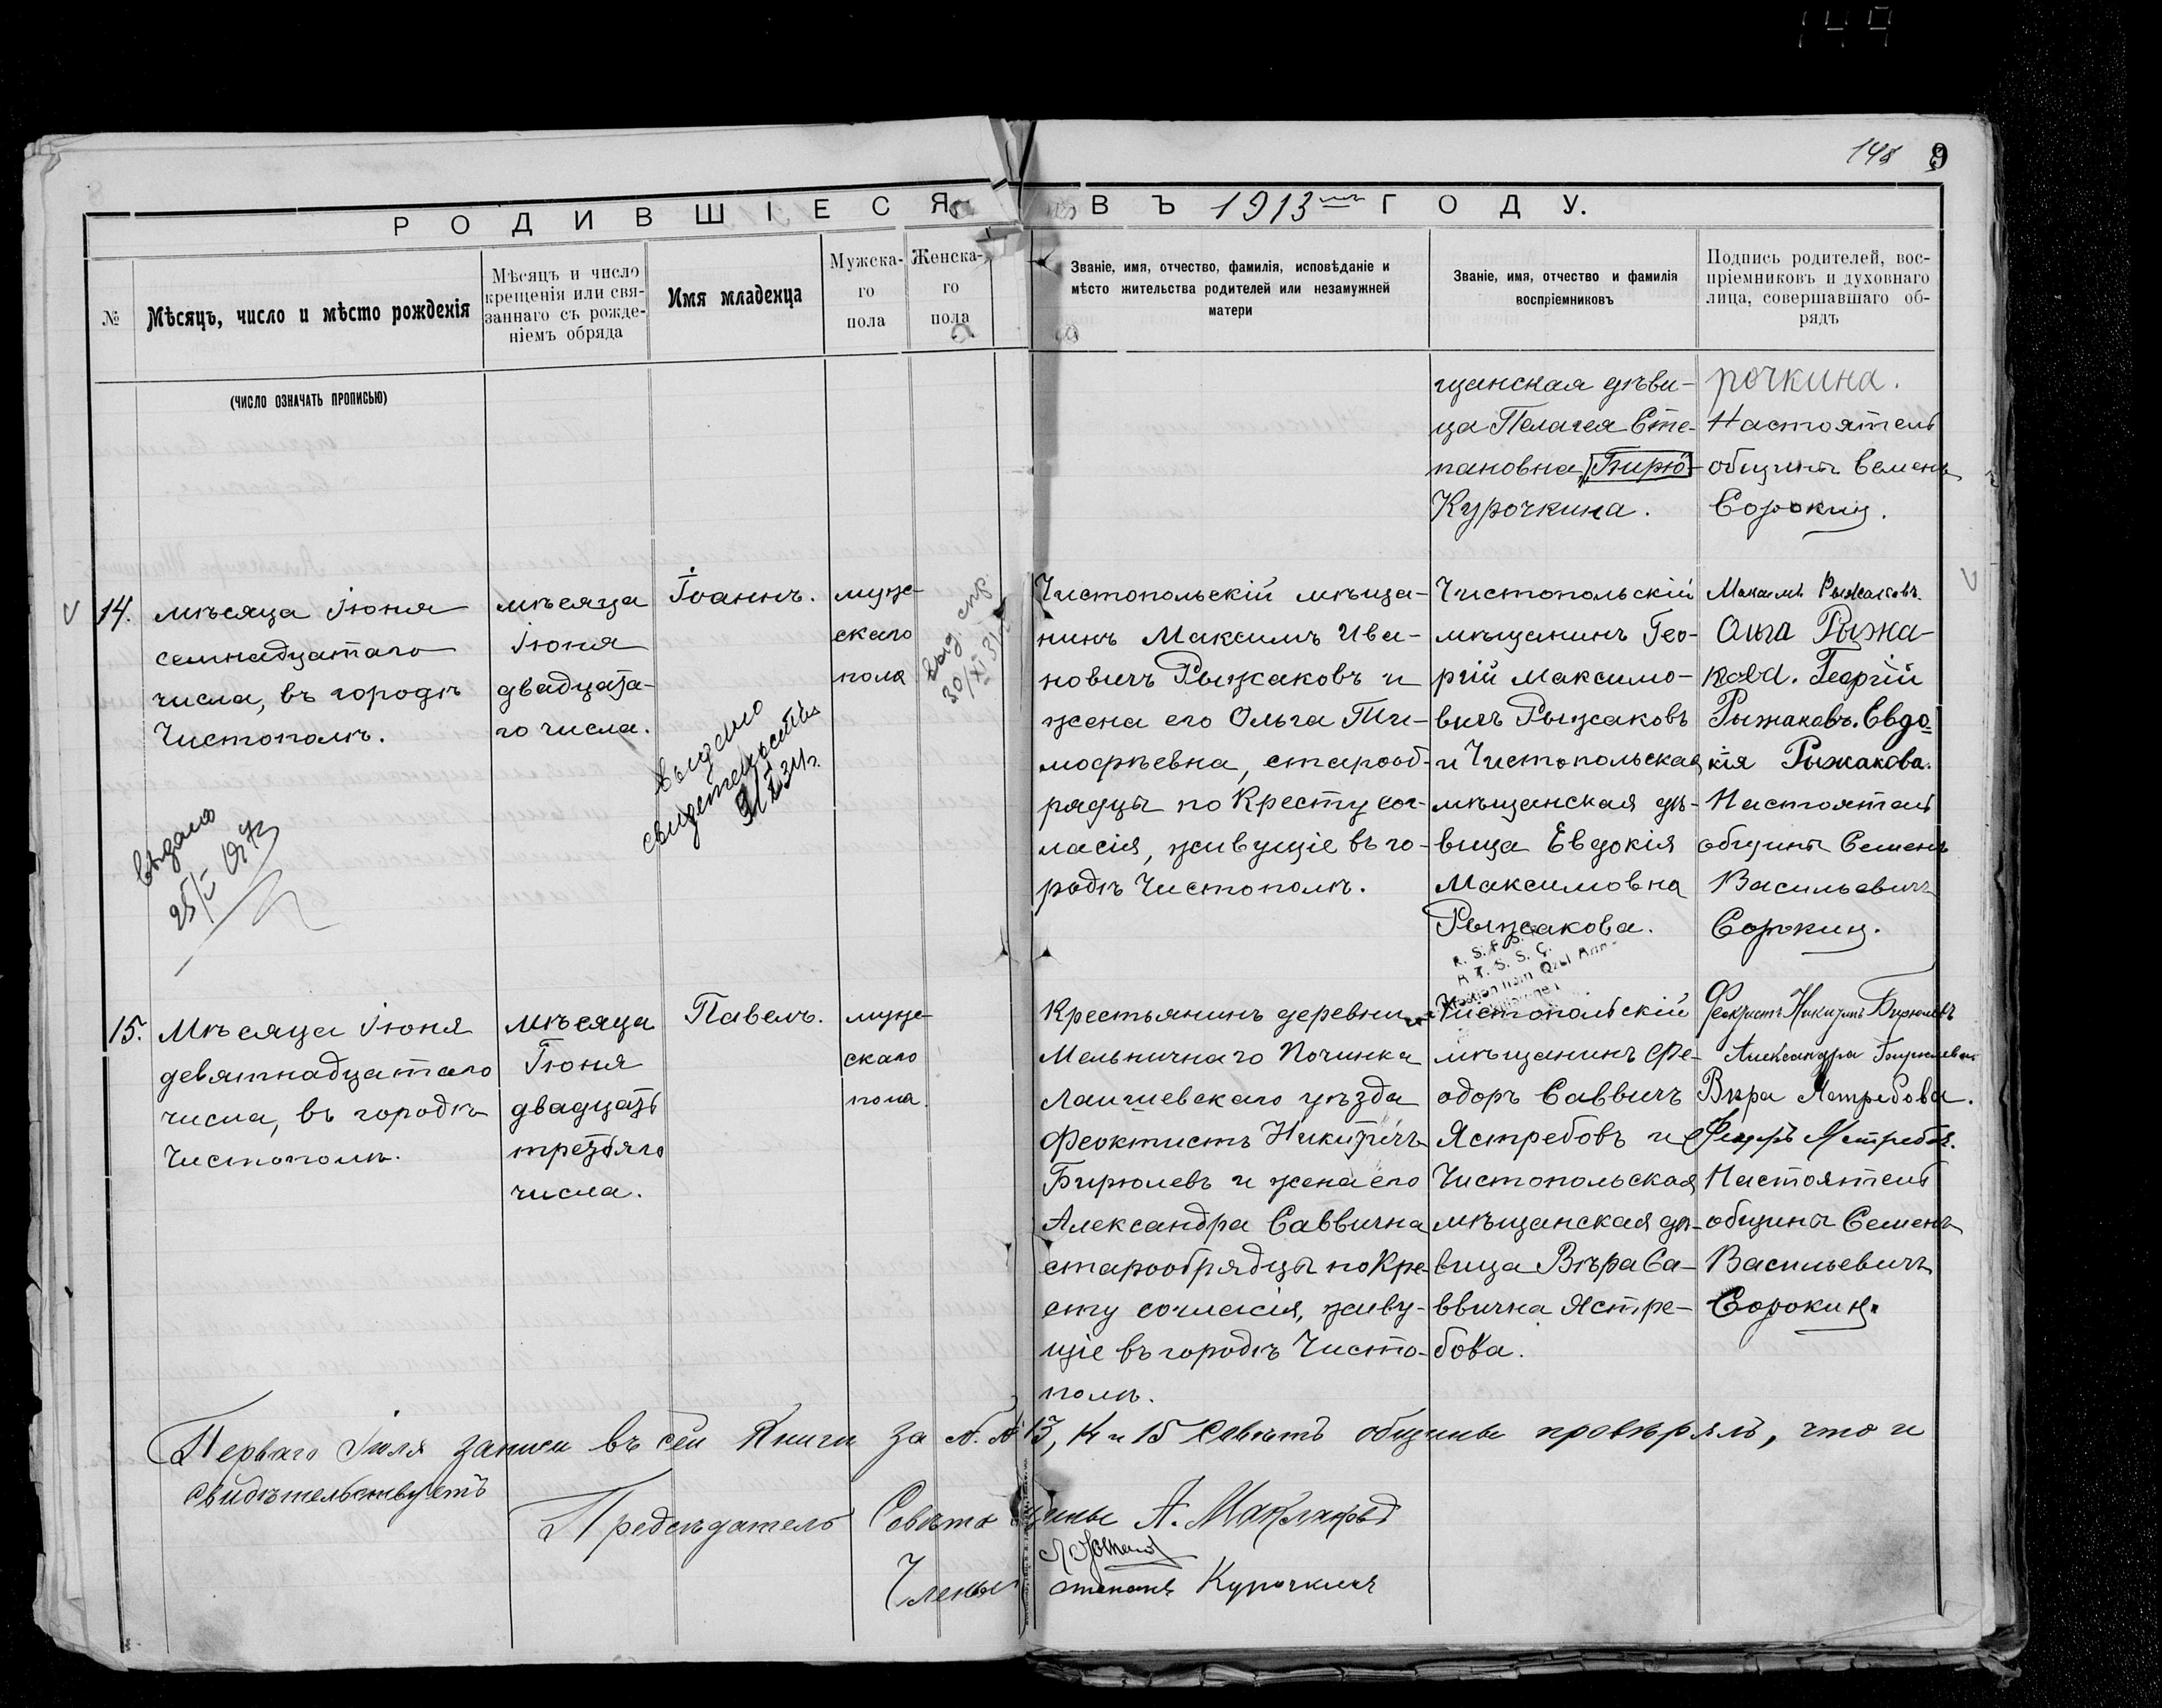 149
148 9
РОДИВШІЕСЯ ВЪ 1913 ГОДУ.
№
Мѣсяцъ, число и мѣсто рожденія
(ЧИСЛО ОЗНАЧАТЬ ПРОПИСЬЮ)
Мѣсяцъ и число
крещенія или свя-
заннаго съ рожде-
ніемъ обряда
Имя младенца
Мужска-
го
пола
Женска-
го
пола
Званіе, имя, отчество, фамилія, исповѣданіе и
мѣсто жительства родителей или незамужней
матери
Званіе, имя, отчество и фамилія
воспріемниковъ
Подпись родителей, вос-
пріемниковъ и духовнаго
лица, совершавшаго об-
рядъ
щанская дѣви-
ца Пелагея Сте-
пановна Бирю-
Курочкина.
рочкина.
Настоятель
общины Семенъ
Сорокин.
14.
мѣсяца Іюня
семнадцатаго
числа, въ городѣ
Чистополѣ.
мѣсяца
Іюня
двадцата-
го числа.
Іоаннъ.
муже-
скаго
пола
выд. спр.
30/XI 31
выдано
свидетельство
выдано
Чистопольскій мѣща-
нинъ Максимъ Ива-
новичъ Рыжаковъ и
жена его Ольга Ти-
мофѣевна, старооб-
рядцы по Кресту сог-
ласія, живущіе въ го-
родѣ Чистополѣ.
Чистопольскій
мѣщанинъ Гео-
ргій Максимо-
вичъ Рыжаковъ
и Чистопольская
мѣщанская дѣ-
вица Евдокія
Максимовна
Рыжакова.
Максимъ Рыжаковъ.
Ольга Рыжа-
кова. Георгій
Рыжаковъ. Евдо
кія Рыжакова.
Настоятель
общины Семенъ
Васильевичъ
Сорокин.
R. S. F. S.
A. T. S. S. C.
15.
Мѣсяца Іюня
девятнадцатаго
числа, въ городѣ
Чистополѣ.
мѣсяца
Іюня
двадцать
третьяго
числа.
Павелъ.
муже-
скаго
пола.
Крестьянинъ деревни
Мельничнаго Починка
Лаишевскаго уѣзда
Феоктистъ Никитичъ
Бирюлевъ и жена его
Александра Саввична
старообрядцы по Кре-
сту согласія, живу-
щіе въ городѣ Чисто-
полѣ.
Чистопольскій
мѣщанинъ Фе-
одоръ Саввичъ
Ястребовъ и
Чистопольская
мѣщанская дѣ-
вица Вѣра Са-
ввична Ястре-
бова.
Никитинъ Бирюлевъ
Александра
Вѣра Ястребова.
Федоръ Ястребов.
Настоятель
общины Семенъ
Васильевичъ
Сорокин.
Перваго Іюля записи въ сей Книги за №№ 13, 14 и 15 Совѣтъ общины провѣрялъ, что и
свидѣтельствуетъ
Председатель Совѣта общины А. Маклаковъ
Члены
Степанъ Курочкинъ